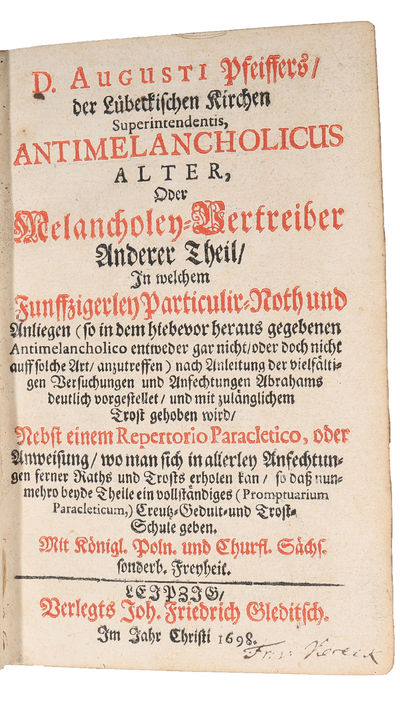 D. AUGUSTI Pfeiffers/
der Lübeckischen Kirchen
Superintendentis,
ANTIMELANCHOLICUS
ALTER,
Oder
Melancholey-Vertreiber
Anderer Theil/
In welchem
Funffzigerley Particulir-Noth und
Anliegen (so in dem hiebevor heraus gegebenen
Antimelancholico entweder gar nicht/oder doch nicht
auff solche Art/ anzutreffen) nach Anleitung der vielfälti-
gen Versuchungen und Anfechtungen Abrahams
deutlich vorgestellet/ und mit zulänglichem
Trost gehoben wird/
Nebst einem Repertorio Paracletico, oder
Anweisung/ wo man sich in allerley Anfechtun-
gen ferner Raths und Trosts erholen kan/ so daß nun-
mehro beyde Theile ein vollständiges (Promptuarium
Paracleticum,) Creutz-Gedult-und Trost-
Schule geben.
Mit Königl. Poln. und Churfl. Sächs.
sonderb. Freyheit.
LEIPZIG/
Verlegts Joh. Friedrich Gleditsch.
Im Jahr Christi 1698.